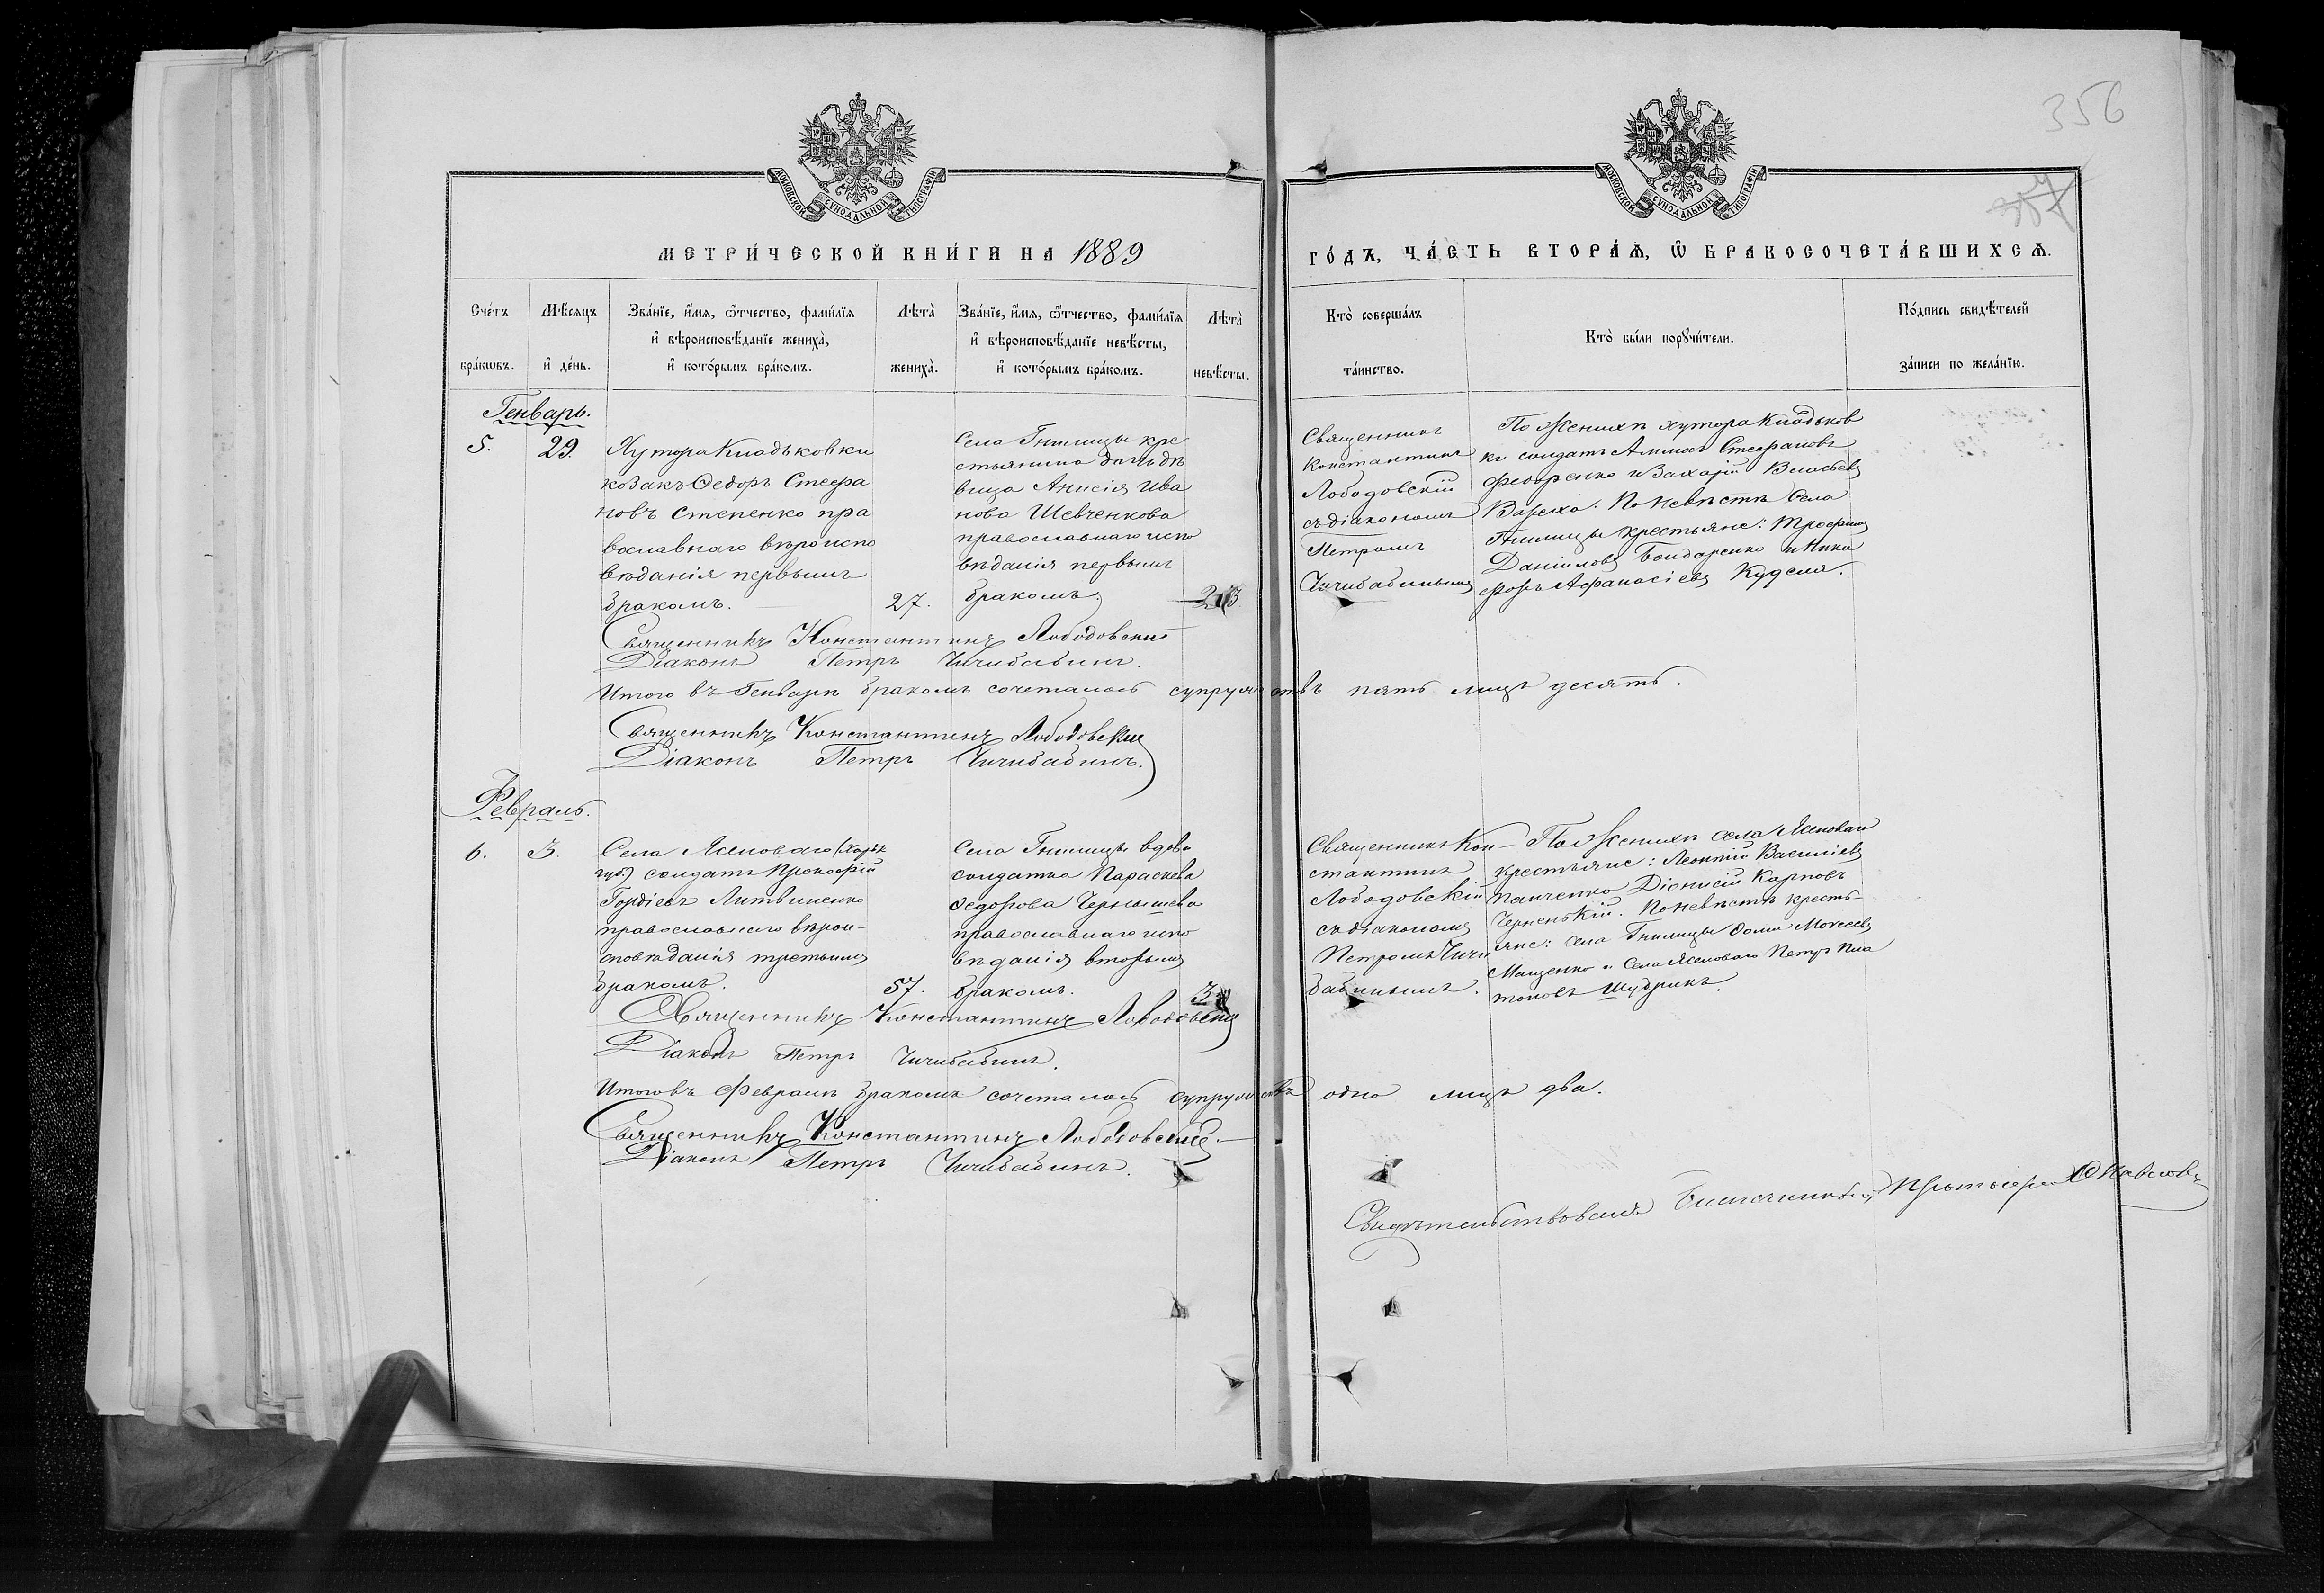 356
МОСКОВСКОЙ СѴНОДАЛЬНОЙ ТИПОГРАФІИ
МОСКОВСКОЙ СѴНОДАЛЬНОЙ ТИПОГРАФІИ
МЕТРИ́ЧЕСКОЙ КНИ́ГИ НА 1889
ГО́ДЪ, ЧА́СТЬ ВТОРА́Ѧ, Ѽ БРАКОСОЧЕТА́ВШИХСѦ.
Сче́тъ бра́кѡвъ.
Мѣ́сяцъ и҆ де́нь.
Зва́нїе, и҆́мя, ѻ҆́тчество, фами́лїя
и҆ вѣроисповѣ́данїе жениха̀,
и҆ кото́рымъ бра́комъ.
Лѣта̀ жениха̀.
Зва́нїе, и҆́мя, ѻ҆́тчество, фами́лїя
и҆ вѣроисповѣ́данїе невѣ́сты,
и҆ кото́рымъ бра́комъ.
Лѣта̀ невѣ́сты.
Кто̀ соверша́лъ та́инство.
Кто̀ бы́ли порꙋчи́тели.
По́дпись свидѣ́телей
за́писи по жела́нїю.
Генварь.
5. 29.
Хутора Кладьковки
козакъ Ѳедоръ Стефа
новъ Степенко пра
вославнаго вѣроиспо
вѣданія первымъ
бракомъ.
27.
Села Гнилицы кре
стьянина дочь дѣ
вица Анисія Ива
нова Шевченкова
православнаго испо
вѣданія первымъ
бракомъ.
Священникъ
Константинъ
Лободовскій
съ діакономъ
Петромъ
Чичибабинымъ
По женихѣ хутора Кладьков
ки солдатъ Стефановъ
и Захарій Власіевъ
По невѣстѣ Села
Гнилицы крестьяне: Трофимъ
Даніиловъ Бондаренко и Ники
форъ Афанасіевъ Куделя.
Священникъ Константинъ Лободовскій
Діаконъ Петръ Чичибабинъ.
Итого въ Генварѣ бракомъ сочеталось супружествъ пять лицъ десять.
Священникъ Константинъ Лободовскій
Діаконъ Петръ Чичибабинъ.
Февраль.
6. 3.
Села Ясеноваго (Харьк
губ.) солдатъ Прокофій
Гордіевъ Литвиненко
православнаго вѣрои-
сповѣданія третьимъ
бракомъ.
57.
Села Гнилицы вдова
солдатка Параскева
Ѳедорова Чернышева
православнаго испо
вѣданія вторымъ
бракомъ.
Священникъ Кон-
стантинъ
Лободовскій
съ діакономъ
Петромъ Чичи
бабинымъ.
По женихѣ села Ясеноваго
крестьяне: Леонтій Василіевъ
Панченко Діонисій Карповъ
Черненькій. По невѣстѣ кресть-
яне: села Гнилицы Ѳома Моисеевъ
Мащенко и Села Ясеноваго Петръ Пла
тоновъ Шудрикъ.
Священникъ Константинъ Лободовскій
Діаконъ Петръ Чичибабинъ.
Итого въ Февралѣ бракомъ сочеталось супружествъ одно лицъ два.
Священникъ Константинъ Лободовскій.
Діаконъ Петръ Чичибабинъ.
Свидѣтельствовалъ Благочинный Протоіерей